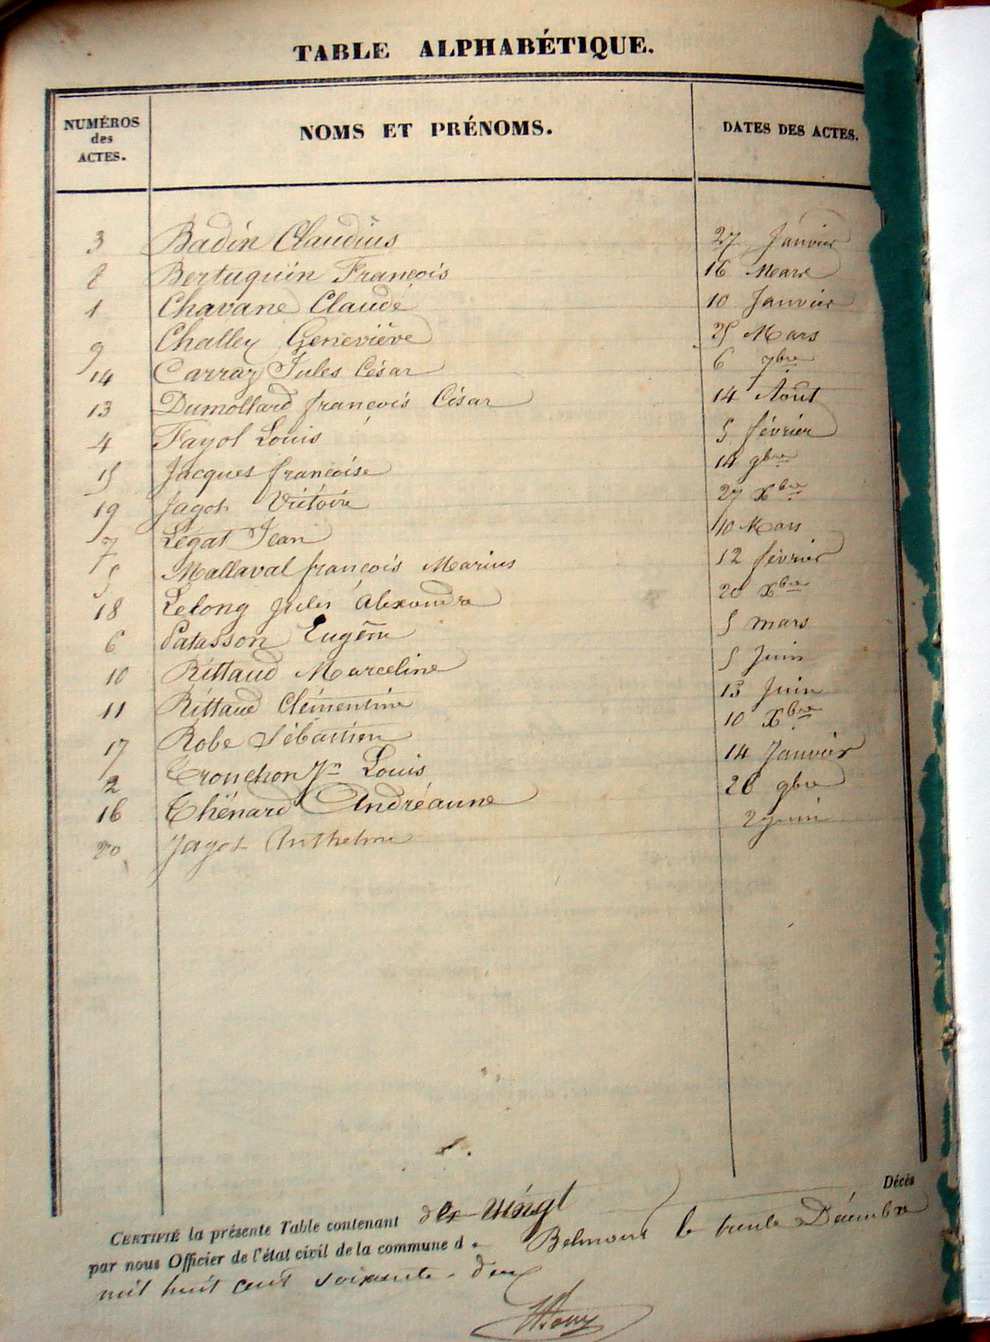 TABLE ALPHABÉTIQUE.
NUMÉROS des ACTES. NOMS ET PRÉNOMS. DATES DES ACTES.
3 Badin Claudius 27 Janvier
8 Bertuquin François 16 Mars
1 Chavane Claude 10 Janvier
9 Challey Geneviève 25 Mars
14 Carraz Jules César 6 7bre
13 Dumollard françois César 14 Août
4 Fayol Louis 5 février
15 Jacques françoise 14 9bre
19 Jagot Victoire 27 Xbre
7 Légat Jean 10 Mars
5 Mallaval françois Marius 12 février
18 Lelong Jules Alexandre 20 Xbre
6 Patasson Eugène 5 mars
10 Rittaud Marceline 5 Juin
11 Rittaud Clémentine 13 Juin
17 Robe Sébastien 10 Xbre
2 Tronchon Jn Louis 14 Janvier
16 Thénard Andréanne 26 9bre
20 Jagot Anthelme 2 juin
CERTIFIÉ la présente Table contenant vingt Décès
par nous Officier de l'état civil de la commune de Belmont le trente Décembre
mil huit cent soixante deux